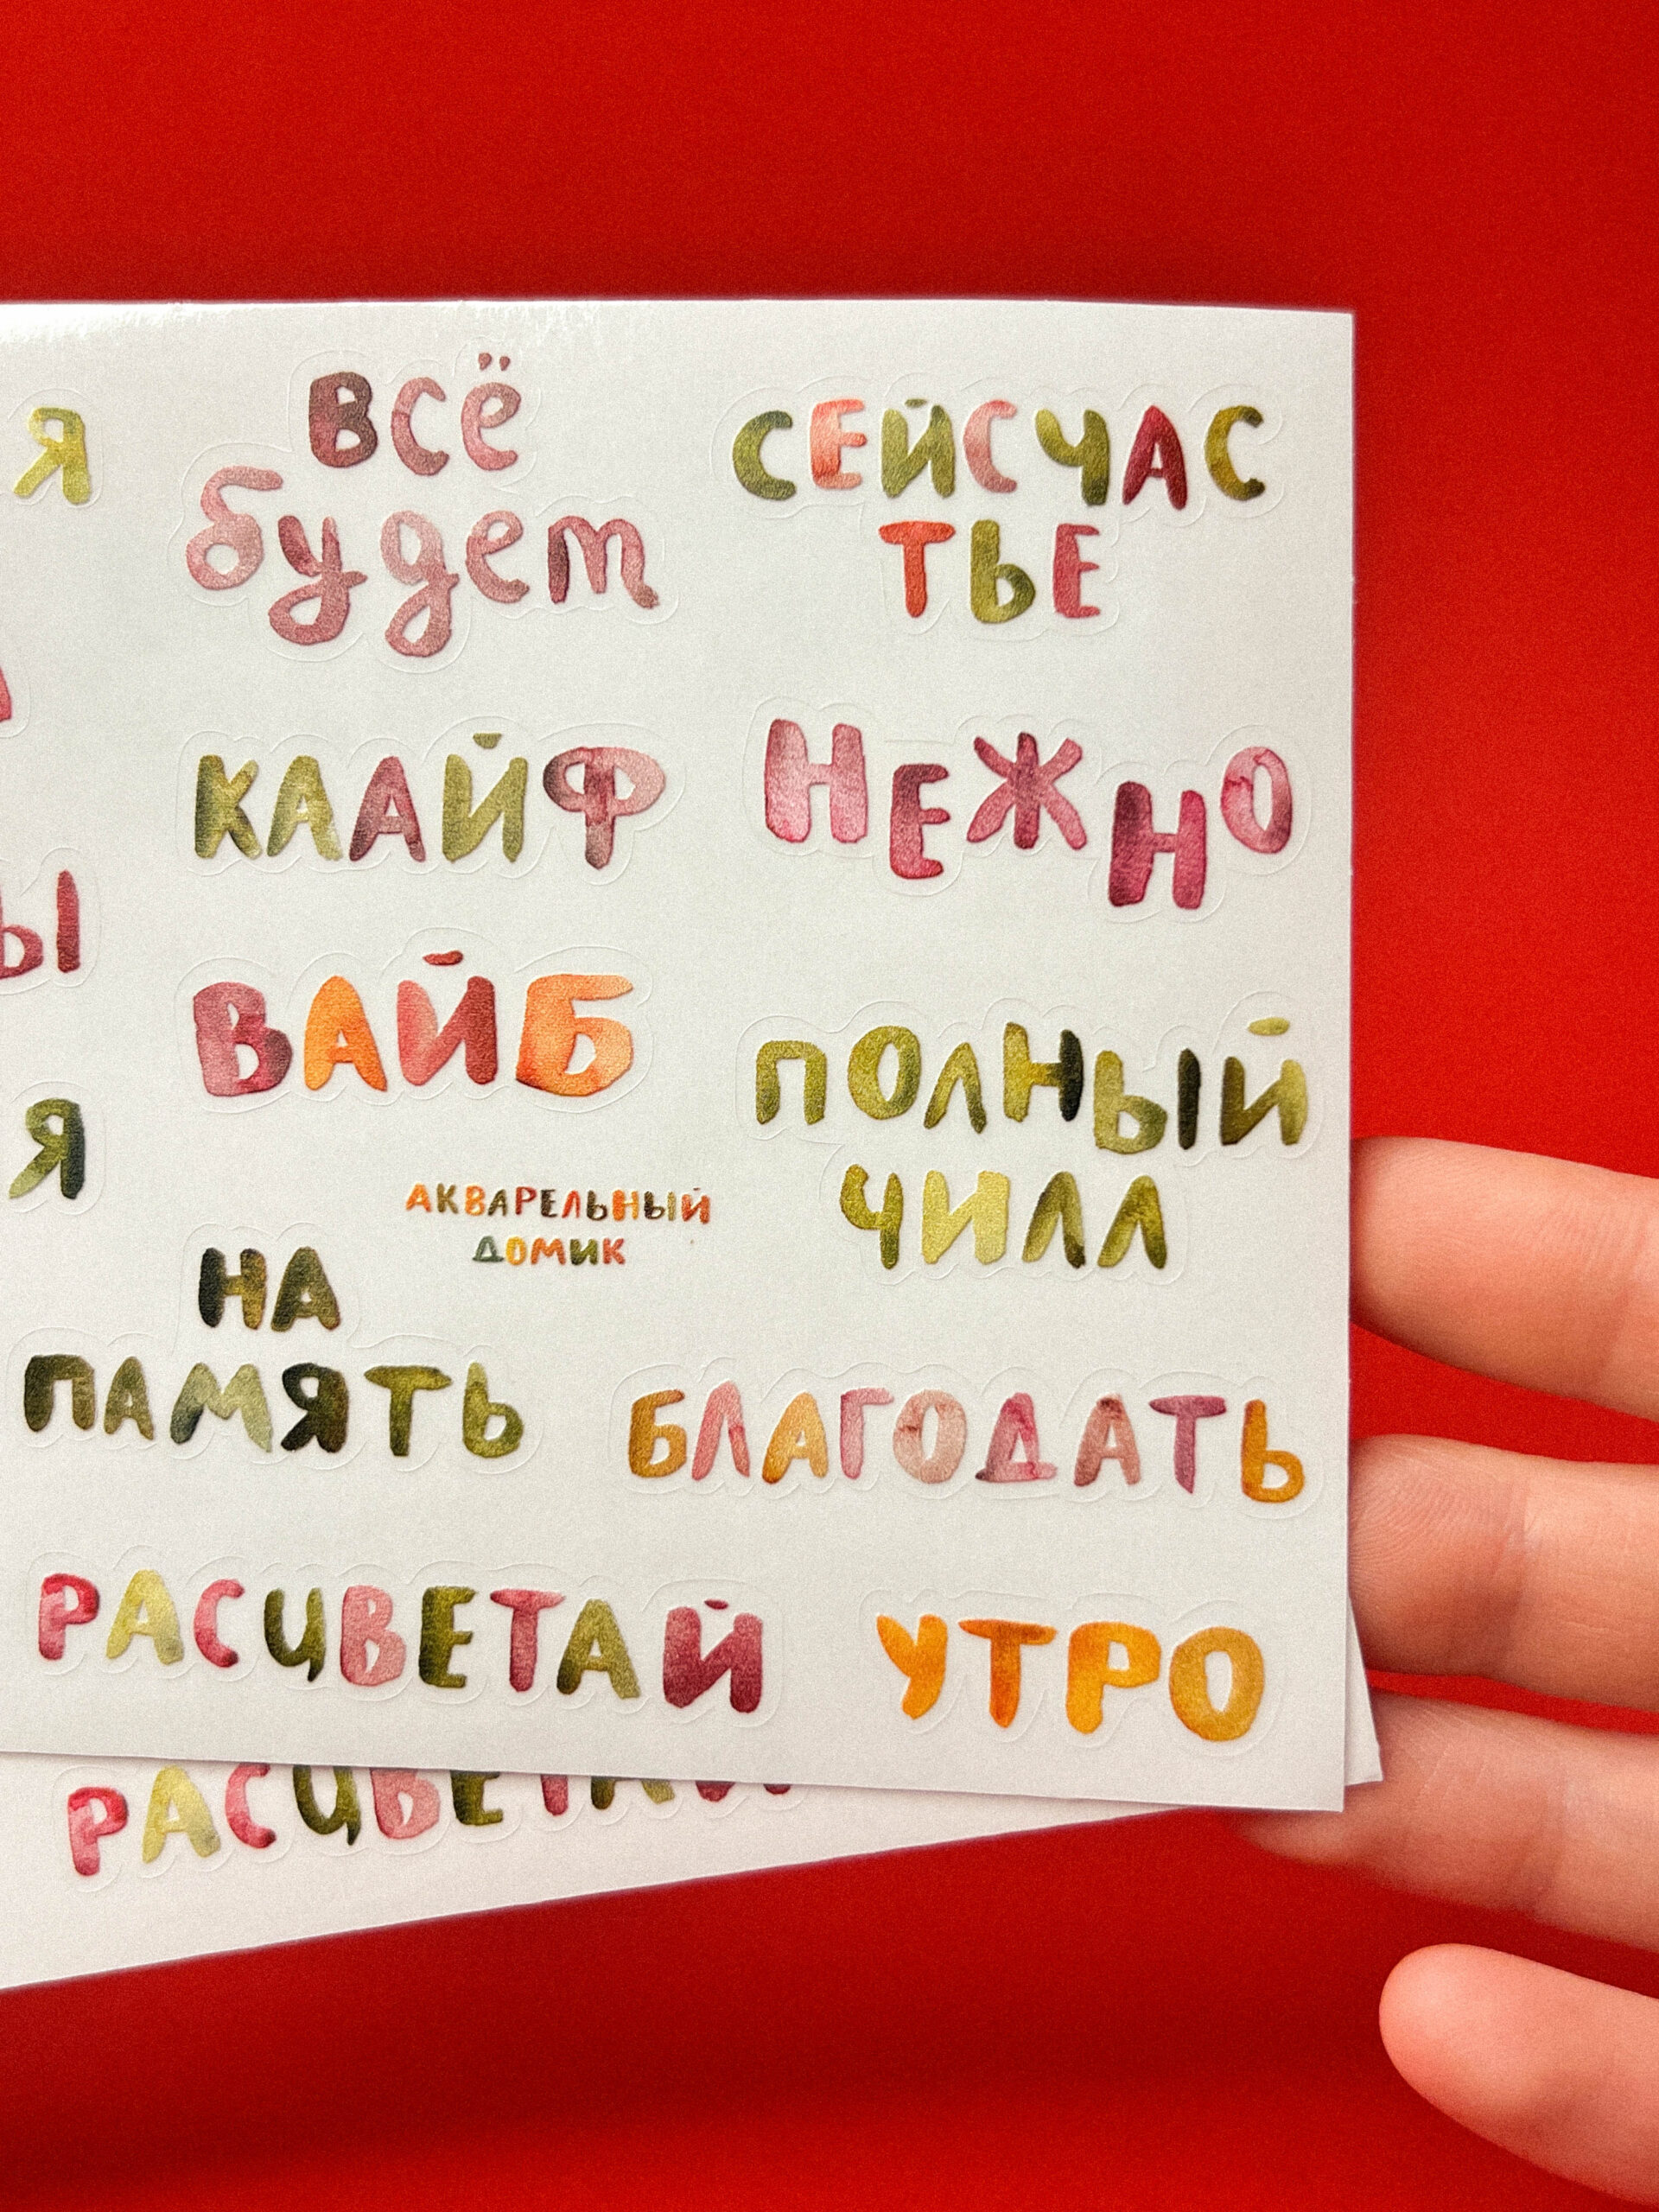 Всё
будет
СЕЙЧАС
ТЬЕ
КААЙФ
НЕЖНО
ВАЙБ
ПОЛНЫЙ
ЧИЛЛ
АКВАРЕЛЬНЫЙ
ДОМИК
НА
ПАМЯТЬ
БЛАГОДАТЬ
РАСЦВЕТАЙ
УТРО
РАСЦВЕТАЙ